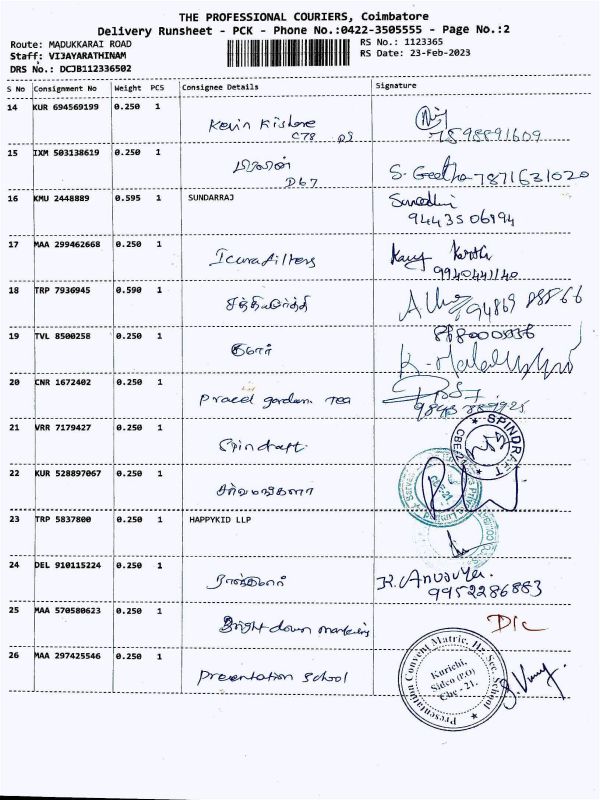 THE PROFESSIONAL COURIERS, Coimbatore
Delivery Runsheet - PCK - Phone No.:0422-3505555 - Page No.:2
Route: MADUKKARAI ROAD
Staff: VIJAYARATHINAM
DRS No.: DCJB112336502
RS No.: 1123365
RS Date: 23-Feb-2023
S No Consignment No Weight PCS Consignee Details Signature
14 KUR 694569199 0.250 1
Kevin Kishore
C78
7598891609
15 IXM 503138619 0.250 1
D67
S. Geetha 7871631020
16 KMU 2448889 0.595 1 SUNDARRAJ
9443506194
17 MAA 299462668 0.250 1
Icura filters
9940441140
18 TRP 7936945 0.590 1
19 TVL 8500258 0.250 1
குமார்
20 CNR 1672402 0.250 1
garden Tea
21 VRR 7179427 0.250 1
Spindraft
SPINDRAFT
22 KUR 528897067 0.250 1
சர்வமங்களா
23 TRP 5837800 0.250 1 HAPPYKID LLP
24 DEL 910115224 0.250 1
ராஜ்குமார்
K. Anusuya
9952286883
25 MAA 570580623 0.250 1
D/c
26 MAA 297425546 0.250 1
Presentation School
Presentation Convent Matric. Hr. Sec. School
Kurichi,
Sidco (P.O)
Cbe - 21.